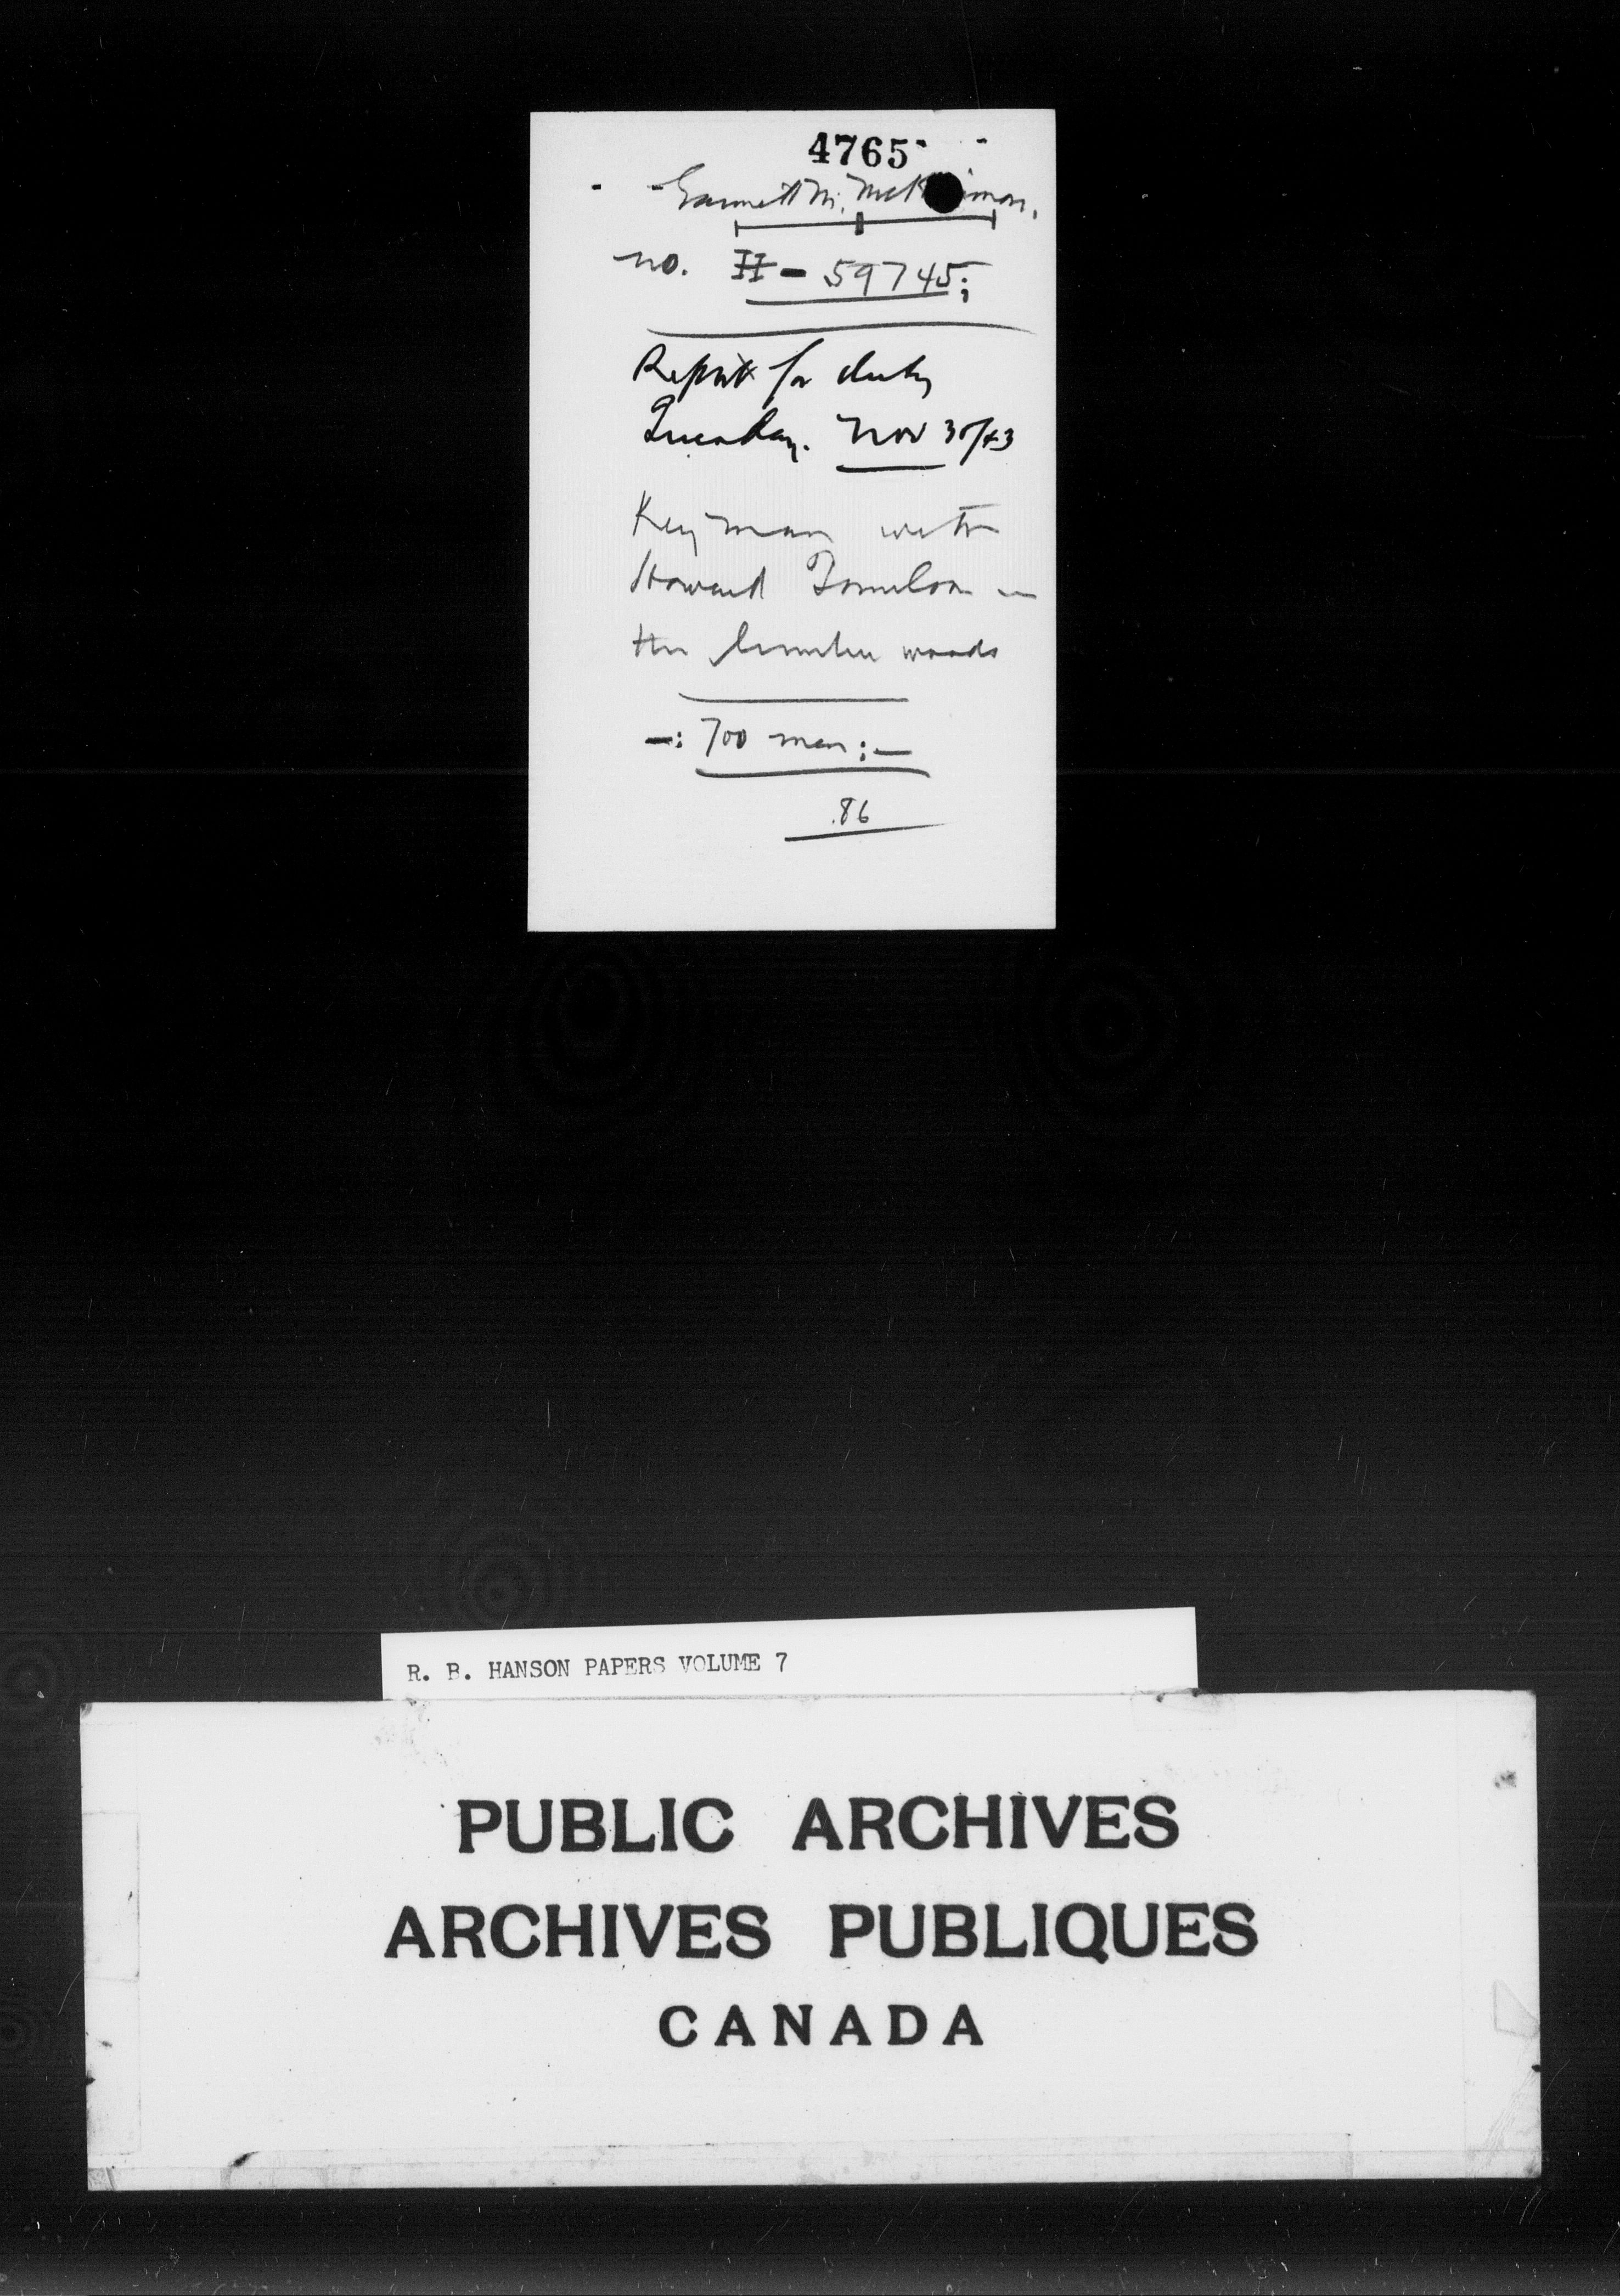 4765
Garnett M. McK imon,
no. H - 59745;
Report for duty
Tuesday. Nov 30/43
Key man with
Howard Tomilson in
the lumber woods
-: 700 men :-
.86
R. B. HANSON PAPERS VOLUME 7
PUBLIC ARCHIVES
ARCHIVES PUBLIQUES
CANADA